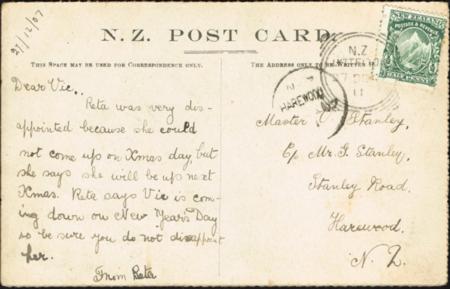 21/12/07
N.Z. POST CARD.
THIS SPACE MAY BE USED FOR CORRESPONDENCE ONLY.
THE ADDRESS ONLY TO BE WRITTEN
Dear Vic,
Reta was very dis-
appointed because she could
not come up on Xmas day, but
she says she will be up next
Xmas. Reta says Vic is com-
ing down on New Year's Day
so be sure you do not disappoint
her.
From Reta
Master V. Stanley,
C/o Mr. G. Stanley,
Stanley Road,
Harewood.
N.Z.
NEW ZEALAND
POSTAGE & REVENUE
HALF PENNY
N.Z
HAREWOOD